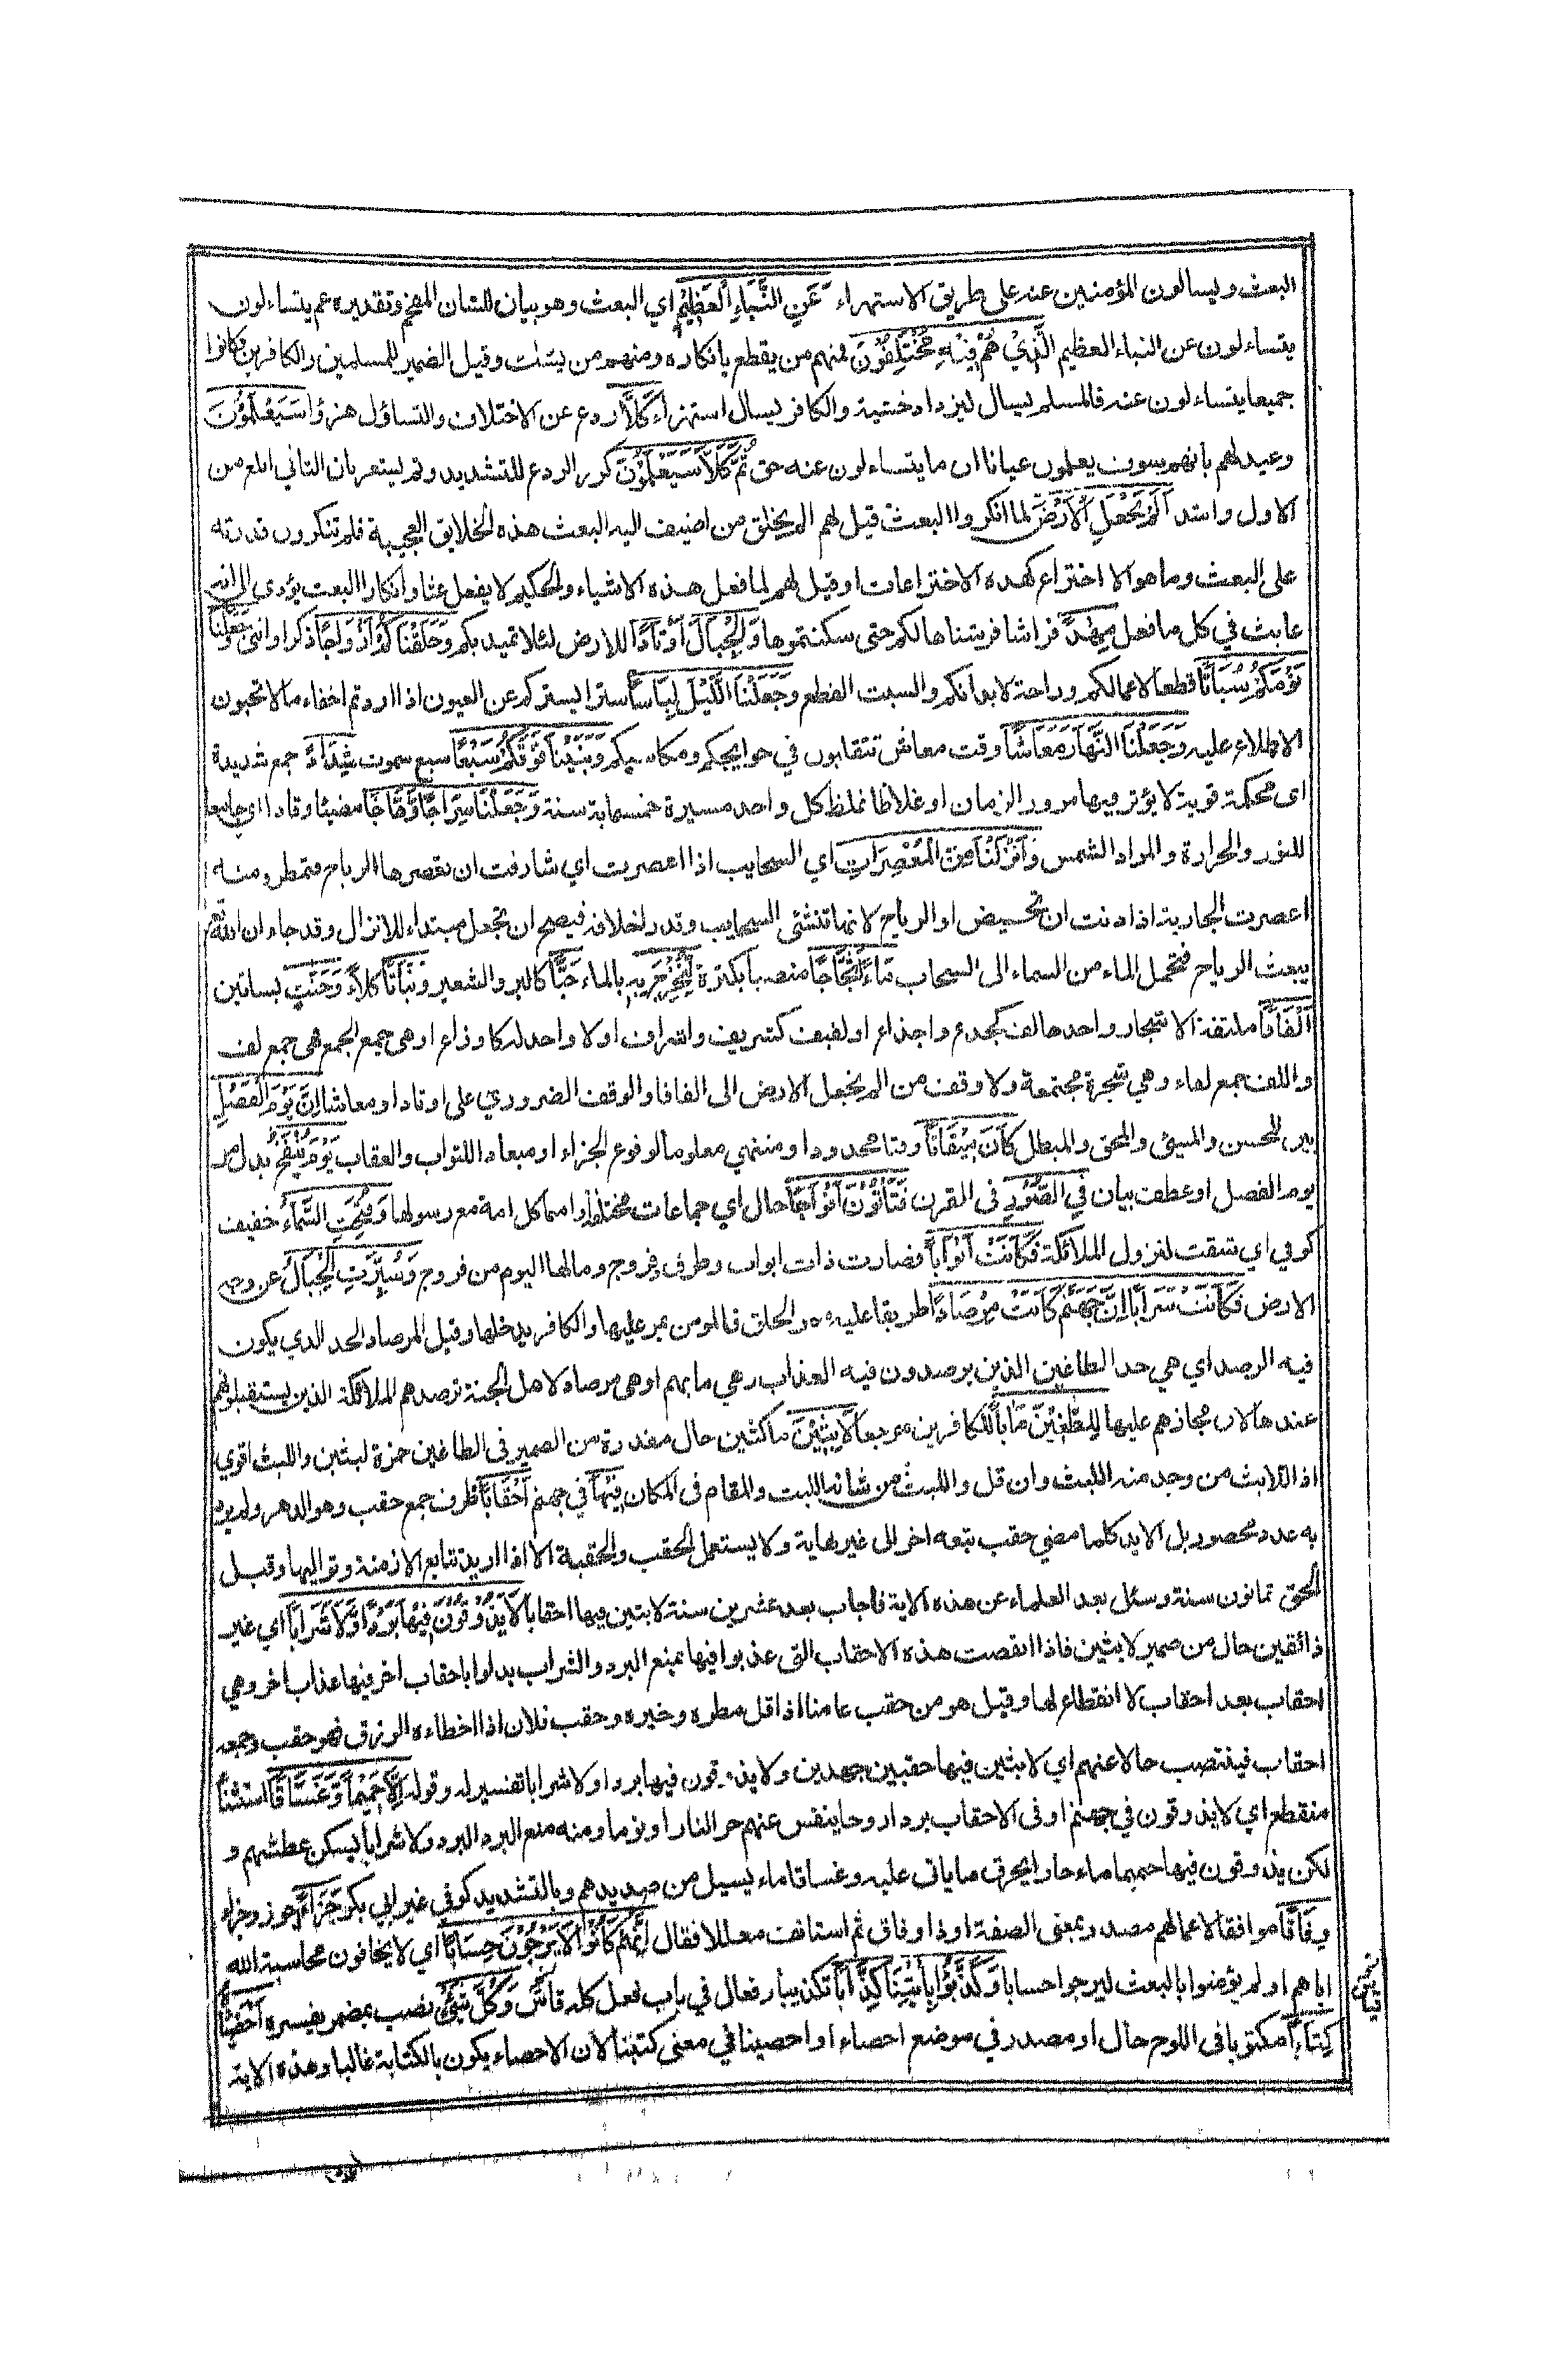 البعث ويسالون المؤمنين عنه على طريق الاستهزاء عَنِ النَّبَاءِ الْعَظِيْمِ اي البعث وهو بيان للشان المفخم وتقديره عم يتساءلون
يتساءلون عن النباء العظيم الَّذِيْ هُمْ فِيْهِ مُخْتَلِفُوْنَ فمنهم من يقطع بانكاره ومنهم من يشك وقيل الضمير للمسلمين والكافرين وكانوا
جميعا يتساءلون عنه فالمسلم ليسال ليزداد خشية والكافر ليسال استهزاء كَلَّا ردع عن الاختلاف والتساؤل هزؤا سَيَعْلَمُوْنَ
وعيد لهم بانهم سوف يعلمون عيانا ان ما يتساءلون عنه حق ثُمَّ كَلَّا سَيَعْلَمُوْنَ كرر الردع للتشديد وثم ليشعر بان الثاني ابلغ من
الاول واشد اَلَمْ نَجْعَلِ الْاَرْضَ لما انكروا البعث قيل لهم الم يخلق من اضيف اليه البعث هذه الخلايق العجيبة فلم تنكرون قدرته
على البعث وما هو الا اختراع كهذه الاختراعات او قيل لهم لما فعل هذه الاشياء والحكيم لا يفعل عبثا وانكار البعث يؤدي الى انه
عابث في كل ما فعل مِهٰدًا فراشا فرشناها لكم حتى سكنتموها وَالْجِبَالَ اَوْتَادًا للارض لئلا تميد بكم وَخَلَقْنَاكُمْ اَزْوَاجًا ذكرا وانثى وَجَعَلْنَا
نَوْمَكُمْ سُبَاتًا قطعا لاعمالكم وراحة لابدانكم والسبت القطع وَجَعَلْنَا الَّيْلَ لِبَاسًا سترا يستركم عن العيون اذا اردتم اخفاء ما لا تحبون
الاطلاع عليه وَجَعَلْنَا النَّهَارَ مَعَاشًا وقت معاش تتقلبون في حوايجكم ومكاسبكم وَبَنَيْنَا فَوْقَكُمْ سَبْعًا سبع سموت شِدَادًا جمع شديدة
اى محكمة قوية لا يؤثر فيها مرور الزمان او غلاظا غلظ كل واحد مسيرة خمسماية سنة وَجَعَلْنَا سِرَاجًا وَّهَّاجًا مضيئا وقادا اي جامعا
للنور والحرارة والمراد الشمس وَاَنْزَلْنَا مِنَ الْمُعْصِرَاتِ اي السحايب اذا اعصرت اي شارفت ان تعصرها الرياح فتمطر ومنه
اعصرت الجارية اذا دنت ان تحيض او الرياح لانها تنشئ السحايب وتدر اخلافه فيصح ان تجعل مبتداء للانزال وقد جاء ان الله تعم
يبعث الرياح فتحمل الماء من السماء الى السحاب مَاءً ثَجَّاجًا منصبا بكثرة لِنُخْرِجَ بِهِ بالماء حَبًّا كالبر والشعير وَنَبَاتًا كلاء وَجَنّٰتٍ بساتين
اَلْفَافًا ملتفة الاشجار واحدها لف كجذع واجذاع او لفيف كشريف واشراف او لا واحد له كاوزاع او هي جمع الجمع هي جمع لف
واللف جمع لفاء وهي شجرة مجتمعة ولا وقف من الم نجعل الارض الى الفافا والوقف الضروري على اوتادا ومعاشا اِنَّ يَوْمَ الْفَصْلِ
بين المحسن والمسيئ والمحق والمبطل كَانَ مِيْقَاتًا وقتا محدودا ومنتهي معلوما لوقوع الجزاء او ميعادا للثواب والعقاب يَوْمَ يُنْفَخُ بدل من
يوم الفصل او عطف بيان فِي الصُّوْرِ فى القرن فَتَأْتُوْنَ اَفْوَاجًا حال اي جماعات مختلفة او امما كل امة مع رسولها وَفُتِحَتِ السَّمَاءُ خفيف
كوفي اي شقت لنزول الملائكة فَكَانَتْ اَبْوَابًا فصارت ذات ابواب وطرق وفروج ومالها اليوم من فروج وَسُيِّرَتِ الْجِبَالُ عن وجه
الارض فَكَانَتْ سَرَابًا اِنَّ جَهَنَّمَ كَانَتْ مِرْصَادًا طريقا عليه الخلق فالمومن يمر عليها والكافر يدخلها وقيل المرصاد الحد الذي يكون
فيه الرصد اي هي حد الطاغين الذين يرصدون فيه العذاب وهي مابهم او هي مرصاد لاهل الجنة ترصدهم الملائكة الذين يستقبلونهم
عندها لان مجازهم عليها لِلطّٰغِيْنَ مَاٰبًا للكافرين مرجعا لٰبِثِيْنَ ماكثين حال مقدرة من الضمير فى الطاغين حمزة لبثين واللبث اقوي
اذ اللابث من وجد منه اللبث وان قل واللبث من شانه اللبث والمقام فى المكان فِيْهَا في جهنم اَحْقَابًا ظرف جمع حقب وهو الدهر ولم يرد
به عدد محصور بل الابد كلما مضي حقب تبعه اخر الى غير نهاية ولا يستعمل الحقب والحقبة الا اذا اريد تتابع الازمنة وتواليها وقيل
الحقب ثمانون سنة وسئل بعد العلماء عن هذه الاية فاجاب بعد عشرين سنة لابثين فيها احقابا لَا يَذُوْقُوْنَ فِيْهَا بَرْدًا وَّلَا شَرَابًا اي غير
ذائقين حال من ضمير لابثين فاذا انقضت هذه الاحقاب التى عذبوا فيها بمنع البرد والشراب بدلوا باحقاب اخر فيها عذاب اخر وهي
احقاب بعد احقاب لا انقطاع لها وقيل هو من حقب عامنا اذا قل مطره وخيره وحقب فلان اذا اخطاءه الرزق فهو حقب وجمعه
احقاب فينتصب حالا عنهم اي لابثين فيها حقبين جهدين ولا يذوقون فيها بردا ولا شرابا تفسير له وقوله اِلَّا حَمِيْمًا وَّغَسَّاقًا استثناء
منقطع اي لا يذوقون في جهنم او فى الاحقاب بردا روحا ينفس عنهم حر النار او نوما ومنه منع البرد البرد ولا شرابا يسكن عطشهم و
لكن يذوقون فيها حميما ماء حارا يحرق ما ياتى عليه وغساقا ماء يسيل من صديدهم وبالتشديد كوفي غير ابي بكر جَزَاءً جوزوا جزاء
وِفَاقًا موافقا لاعمالهم مصدر بمعنى الصفة او ذا وفاق ثم استانف معللا فقال اِنَّهُمْ كَانُوْا لَا يَرْجُوْنَ حِسَابًا اي لا يخافون محاسبة الله
اياهم او لم يؤمنوا بالبعث ليرجوا حسابا وَكَذَّبُوْا بِاٰيٰتِنَا كِذَّابًا تكذيبا وفعال في باب فعل كله فاش وَكُلَّ شَيْئٍ نصب بمضمر يفسره اَحْصَيْنٰهُ
كِتَابًا مكتوبا فى اللوح حال او مصدر في موضع احصاء او احصينا في معنى كتبنا لان الاحصاء يكون بالكتابة غالبا وهذه الاية